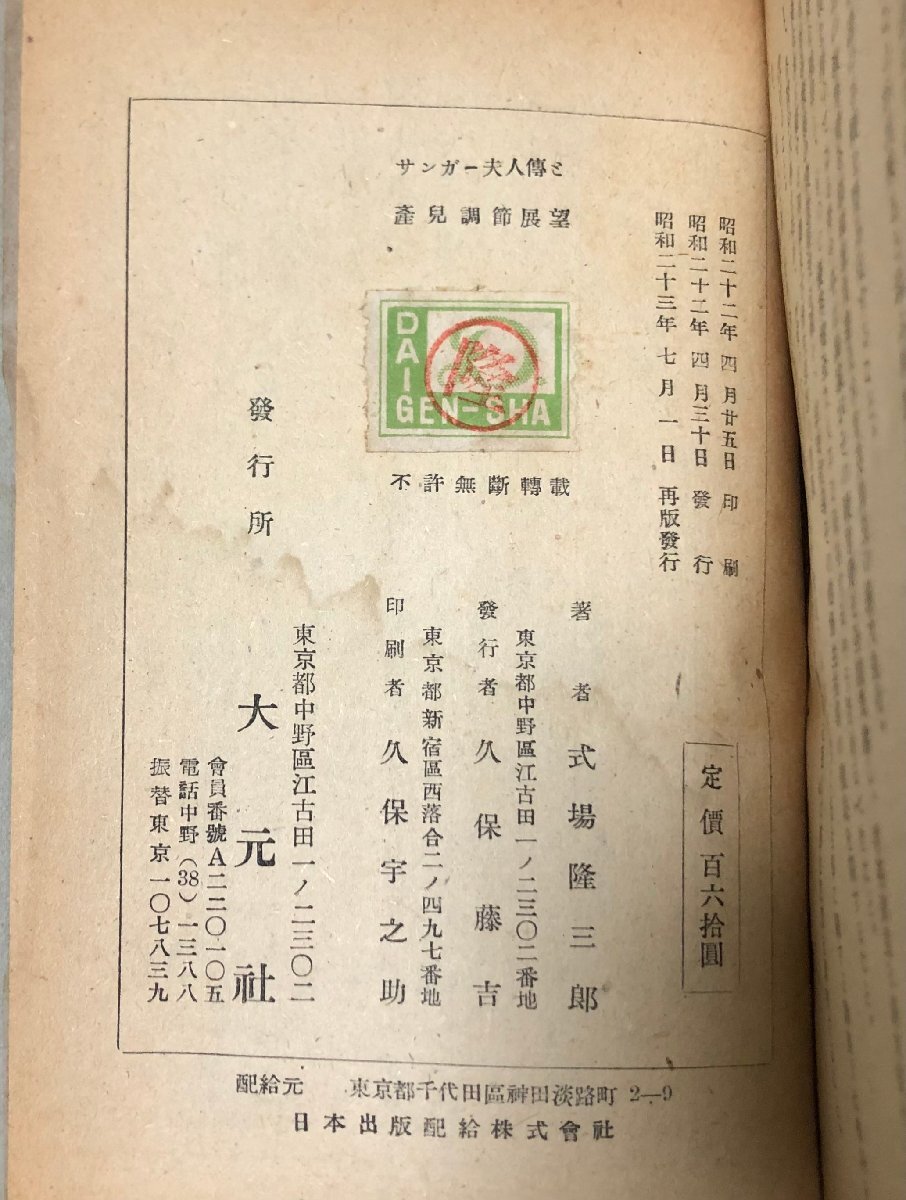 サンガー夫人傳と
產兒調節展望
昭和二十二年四月廿五日印刷
昭和二十二年四月三十日發行
昭和二十三年七月一日再版發行
定價百六拾圓
DAI
GEN-SHA
隆
不許無斷轉載
著者 式場隆三郎
東京都中野區江古田一ノ二三〇二番地
發行者 久保藤吉
東京都新宿區西落合二ノ四九七番地
印刷者 久保宇之助
東京都中野區江古田一ノ二三〇二
發行所 大元社
會員番號A二二〇一〇五
電話中野(38)一三八八
振替東京一〇七八三九
配給元 東京都千代田區神田淡路町 2—9
日本出版配給株式會社